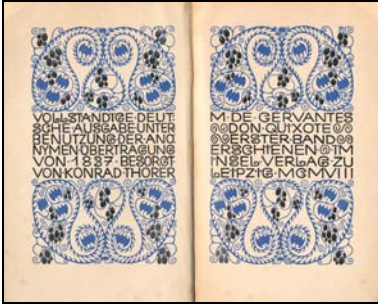 VOLLSTÄNDIGE DEUT-
SCHE AUSGABE UNTER
BENUTZUNG DER ANO
NYMEN ÜBERTRAGUNG
VON 1837 BESORGT
VON KONRAD THORER
M. DE CERVANTES
DON QUIXOTE
ERSTER BAND
ERSCHIENEN IM
INSEL-VERLAG ZU
LEIPZIG MCMVIII